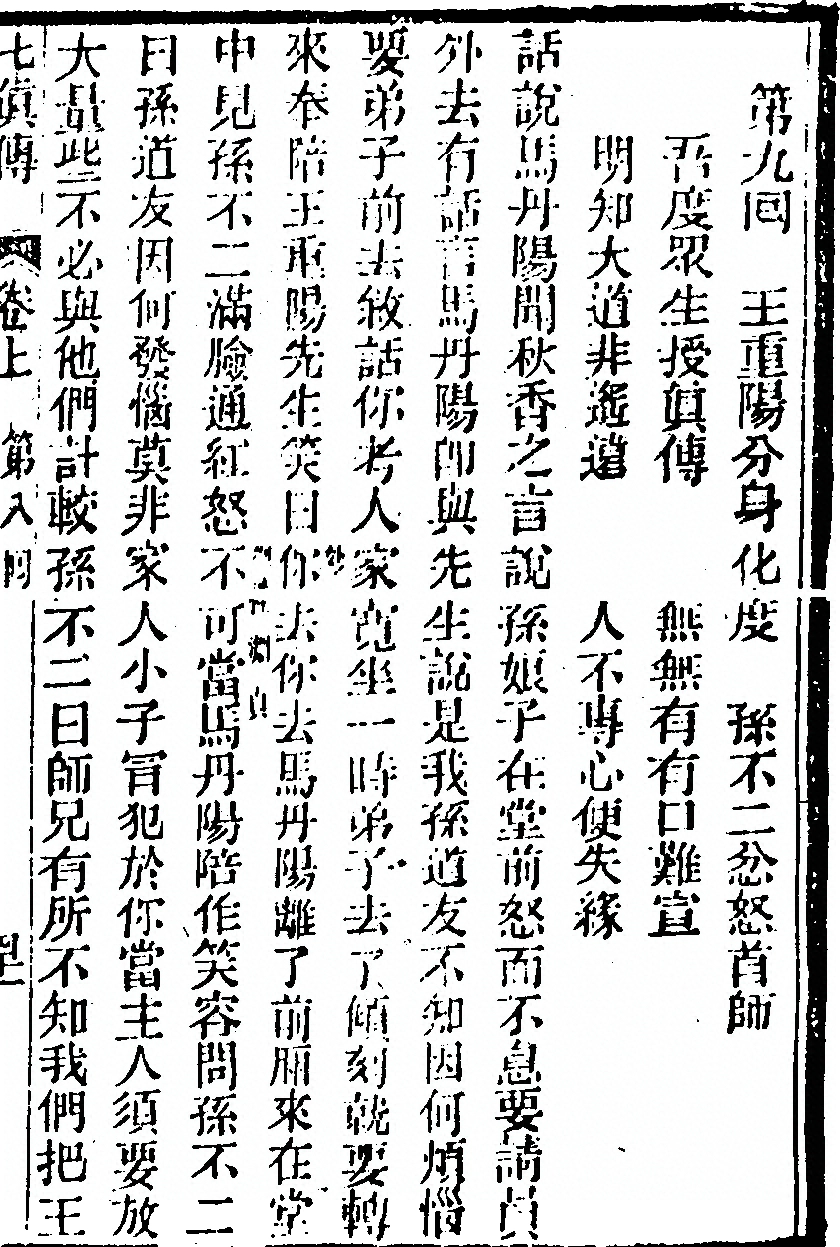 第九回　王重陽分身化度　孫不二忿怒首師
吾度眾生授眞傳　無無有有口難宣
明知大道非遙遠　人不專心便失緣
話說馬丹陽聞秋香之言說孫娘子在堂前怒面不息要請員
外去有話言馬丹陽卽與先生說是我孫道友不知因何煩惱
要弟子前去敘話你老人家寬坐一時弟子去了傾刻就要轉
來奉陪王重陽先生笑曰你去你去馬丹陽離了前廂來在堂
中見孫不二滿臉通紅怒不可當馬丹陽陪作笑容問孫不二
曰孫道友因何發惱莫非家人小子冒犯於你當主人須要放
大量些不必與他們計較孫不二曰師兄有所不知我們把王
七眞傳　卷上　第八回